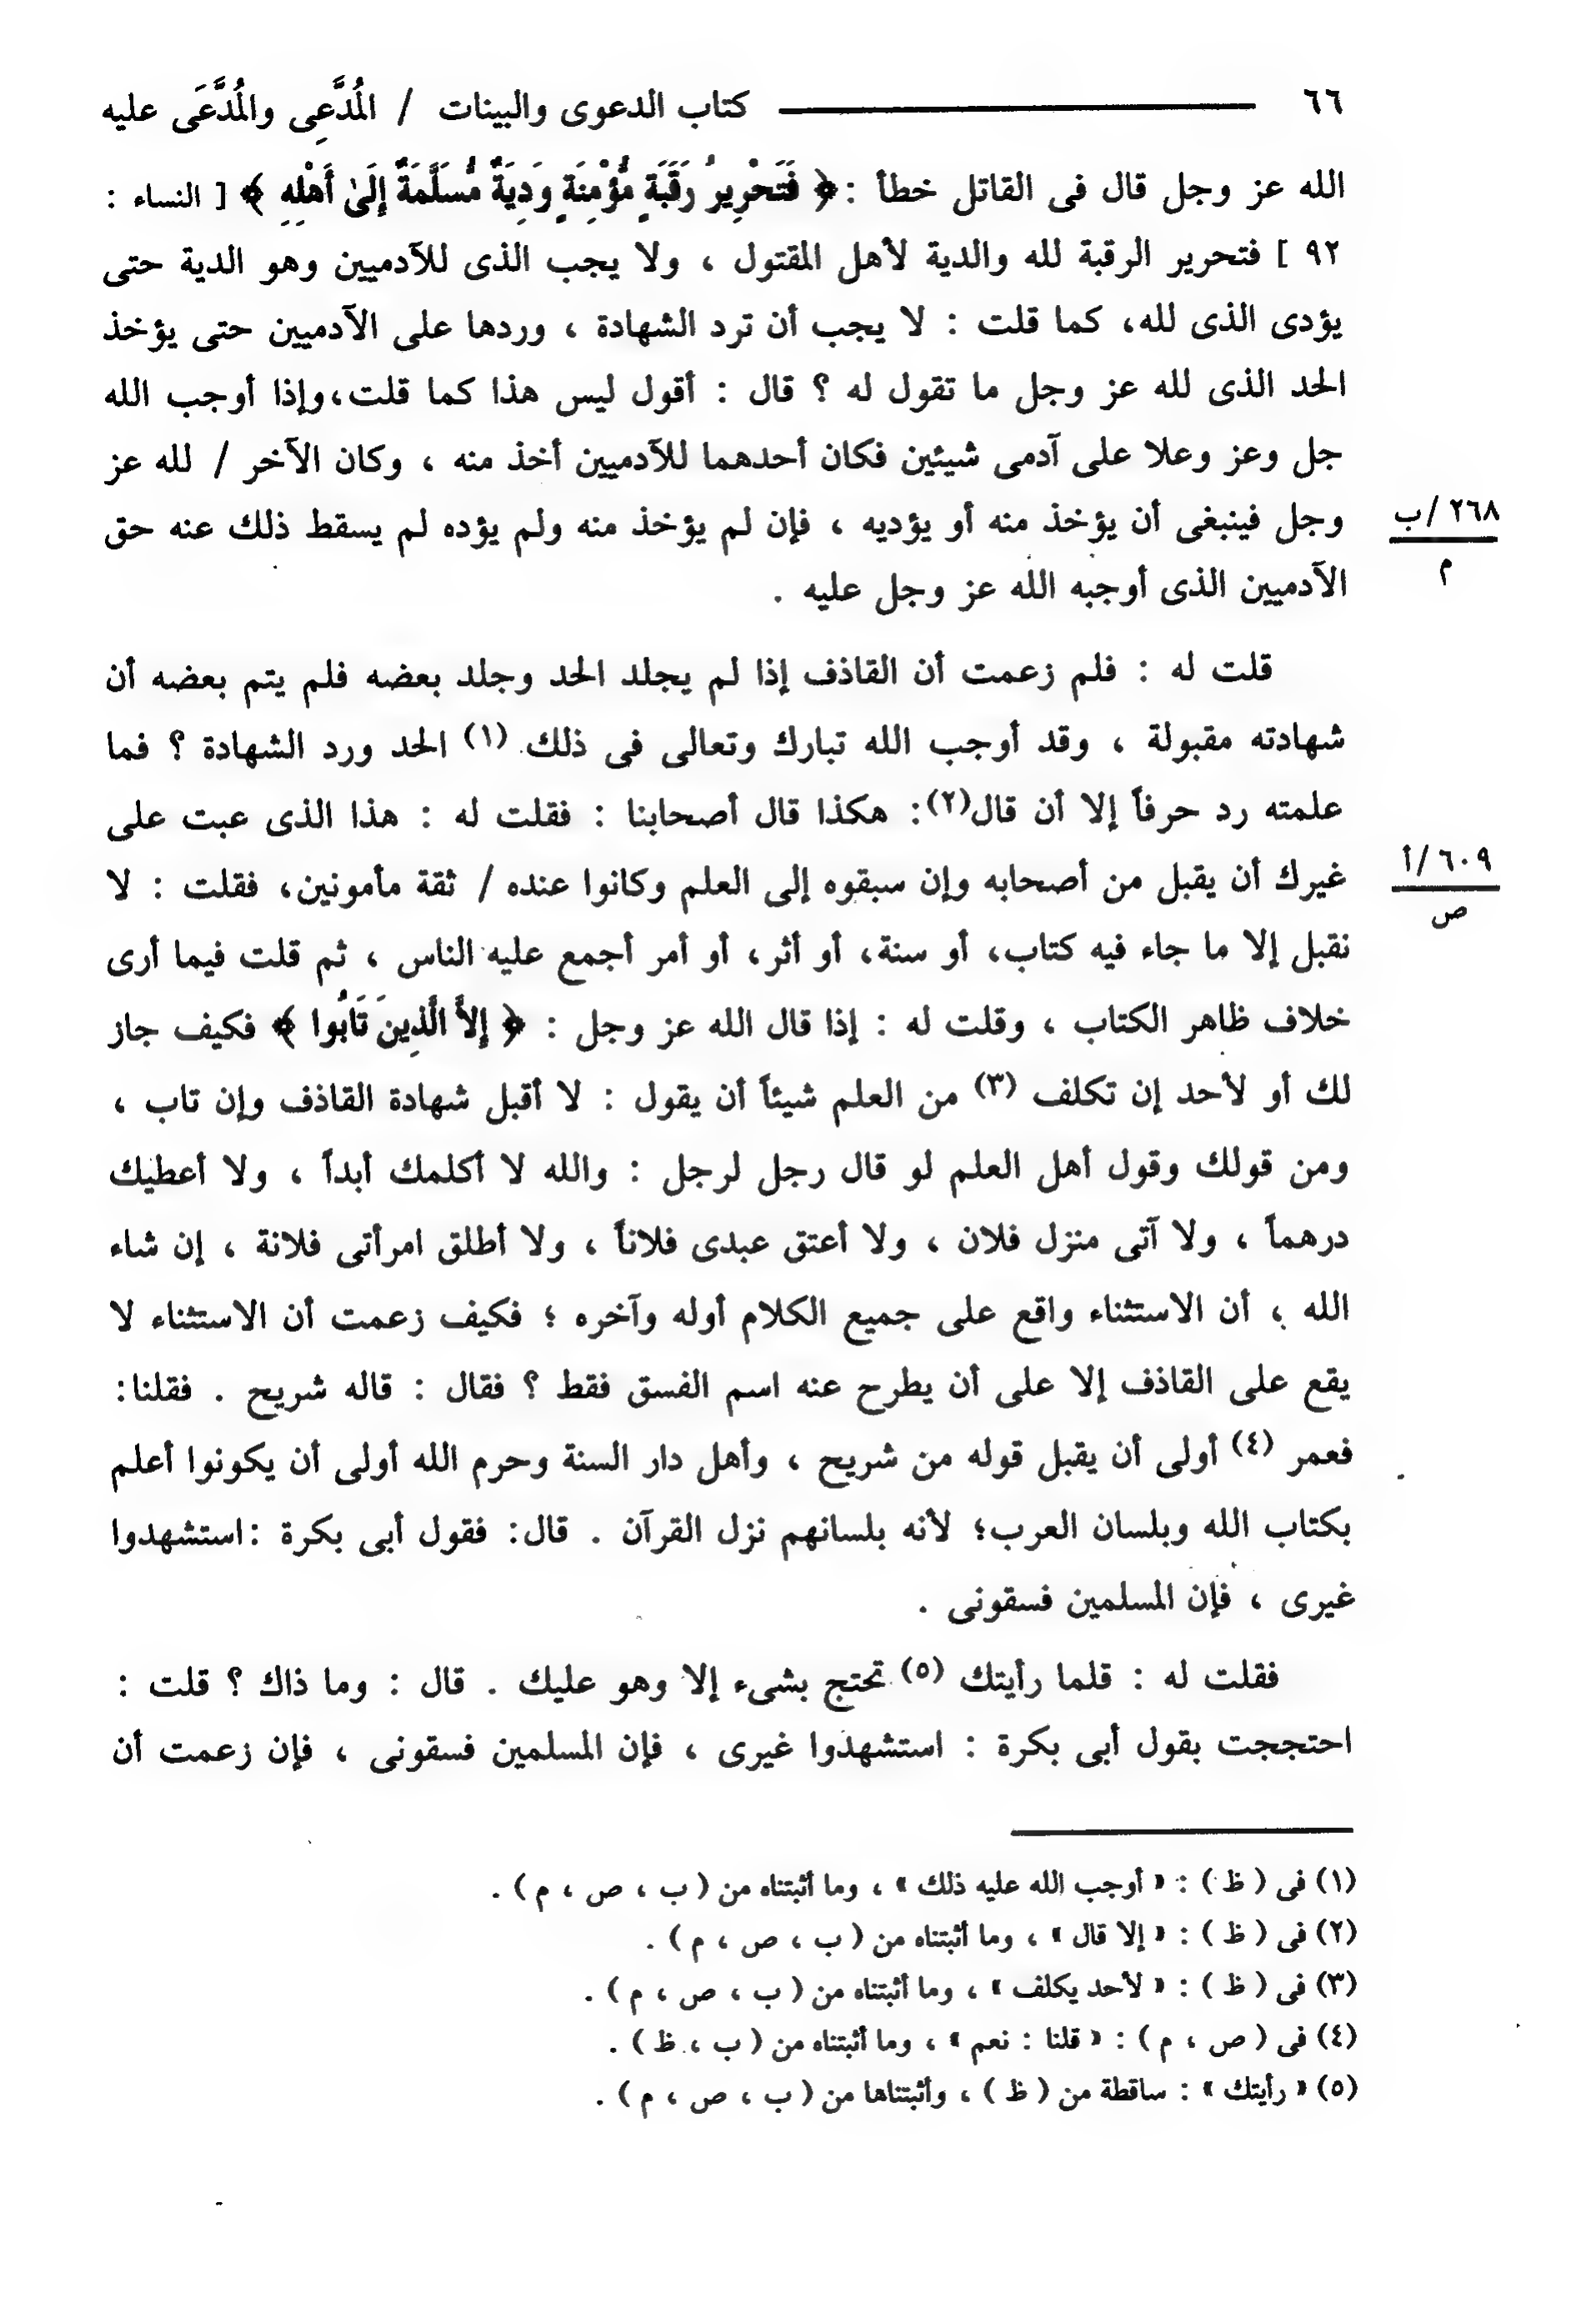 ٦٦ كتاب الدعوى والبينات / المُدَّعِى والمُدَّعَى عليه
الله عز وجل قال فى القاتل خطأ : ﴿ فَتَحْرِيرُ رَقَبَةٍ مُّؤْمِنَةٍ وَدِيَةٌ مُّسَلَّمَةٌ إِلَىٰ أَهْلِهِ ﴾ [ النساء :
٩٢ ] فتحرير الرقبة لله والدية لأهل المقتول ، ولا يجب الذى للآدميين وهو الدية حتى
يؤدى الذى لله، كما قلت : لا يجب أن ترد الشهادة ، وردها على الآدميين حتى يؤخذ
الحد الذى لله عز وجل ما تقول له ؟ قال : أقول ليس هذا كما قلت،وإذا أوجب الله
جل وعز وعلا على آدمى شيئين فكان أحدهما للآدميين أخذ منه ، وكان الآخر / لله عز
٢٦٨ /ب
م
وجل فينبغى أن يؤخذ منه أو يؤديه ، فإن لم يؤخذ منه ولم يؤده لم يسقط ذلك عنه حق
الآدميين الذى أوجبه الله عز وجل عليه .
قلت له : فلم زعمت أن القاذف إذا لم يجلد الحد وجلد بعضه فلم يتم بعضه أن
شهادته مقبولة ، وقد أوجب الله تبارك وتعالى فى ذلك (١) الحد ورد الشهادة ؟ فما
علمته رد حرفاً إلا أن قال(٢): هكذا قال أصحابنا : فقلت له : هذا الذى عبت على
٦٠٩ /أ
ص
غيرك أن يقبل من أصحابه وإن سبقوه إلى العلم وكانوا عنده / ثقة مأمونين، فقلت : لا
نقبل إلا ما جاء فيه كتاب، أو سنة، أو أثر، أو أمر أجمع عليه الناس ، ثم قلت فيما أرى
خلاف ظاهر الكتاب ، وقلت له : إذا قال الله عز وجل : ﴿ إِلاَّ الَّذِينَ تَابُوا ﴾ فكيف جاز
لك أو لأحد إن تكلف (٣) من العلم شيئاً أن يقول : لا أقبل شهادة القاذف وإن تاب ،
ومن قولك وقول أهل العلم لو قال رجل لرجل : والله لا أكلمك أبداً ، ولا أعطيك
درهماً ، ولا آتى منزل فلان ، ولا أعتق عبدى فلاناً ، ولا أطلق امرأتى فلانة ، إن شاء
الله ، أن الاستثناء واقع على جميع الكلام أوله وآخره ؛ فكيف زعمت أن الاستثناء لا
يقع على القاذف إلا على أن يطرح عنه اسم الفسق فقط ؟ فقال : قاله شريح . فقلنا:
فعمر (٤) أولى أن يقبل قوله من شريح ، وأهل دار السنة وحرم الله أولى أن يكونوا أعلم
بكتاب الله وبلسان العرب؛ لأنه بلسانهم نزل القرآن . قال: فقول أبى بكرة :استشهدوا
غيرى ، فإن المسلمين فسقونى .
فقلت له : قلما رأيتك (٥) تحتج بشىء إلا وهو عليك . قال : وما ذاك ؟ قلت :
احتججت بقول أبى بكرة : استشهدوا غيرى ، فإن المسلمين فسقونى ، فإن زعمت أن
(١) فى ( ظ ) : « أوجب الله عليه ذلك » ، وما أثبتناه من ( ب ، ص ، م ) .
(٢) فى ( ظ ) : « إلا قال » ، وما أثبتناه من ( ب ، ص ، م ) .
(٣) فى ( ظ ) : « لأحد يكلف » ، وما أثبتناه من ( ب ، ص ، م ) .
(٤) فى ( ص ، م ) : « قلنا : نعم » ، وما أثبتناه من ( ب ، ظ ) .
(٥) « رأيتك » : ساقطة من ( ظ ) ، وأثبتناها من ( ب ، ص ، م ) .